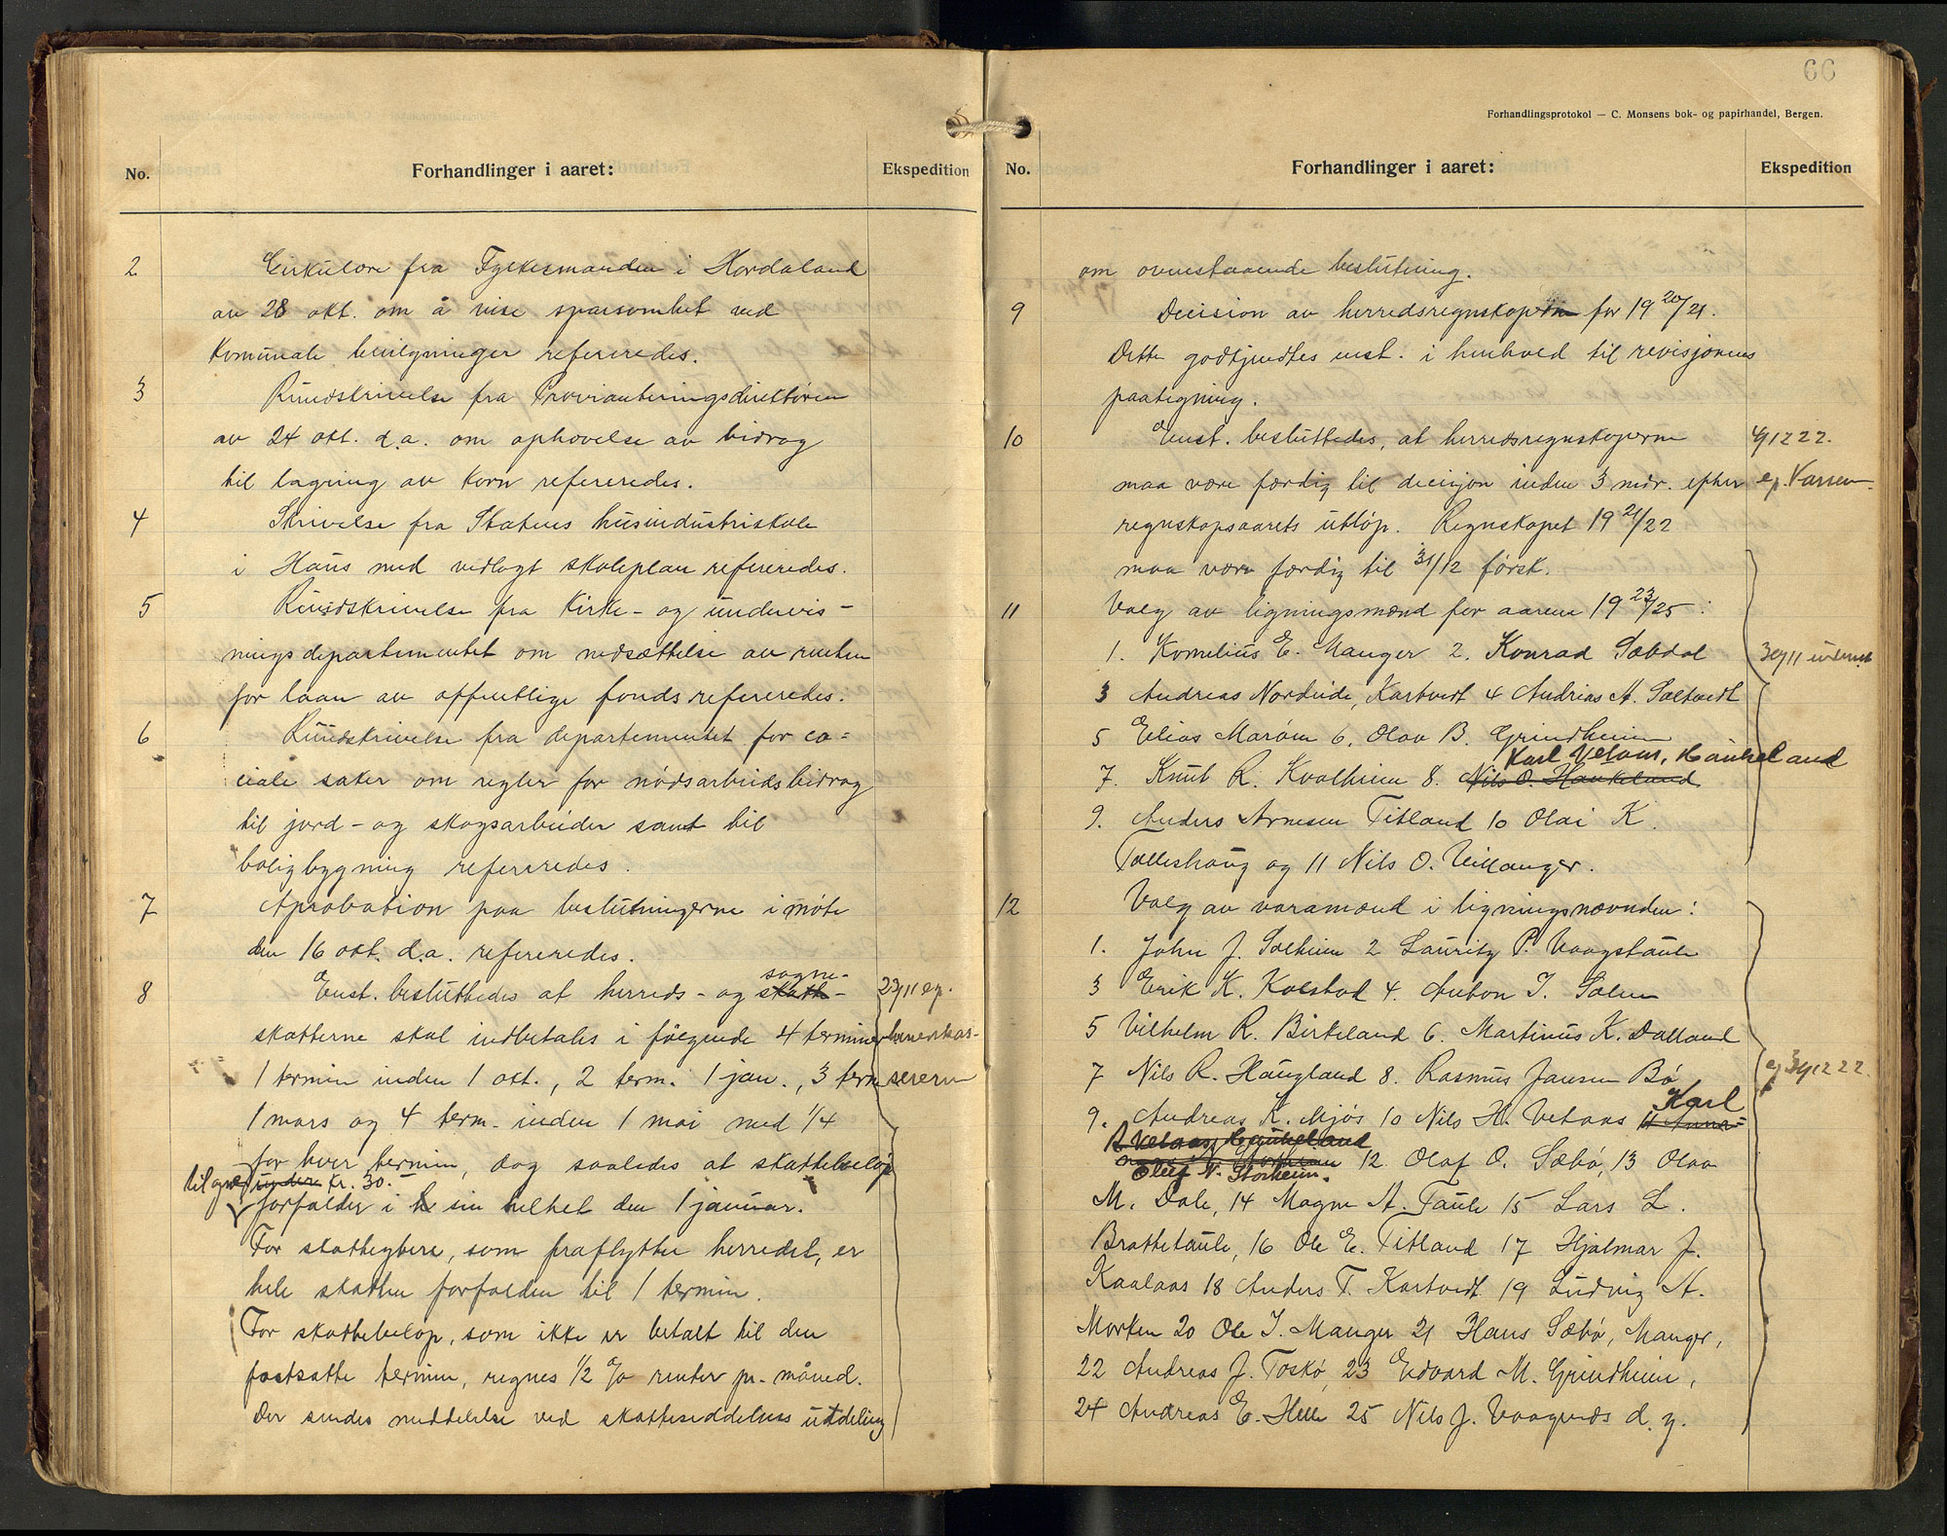 No.
Forhandlinger i aaret:
Ekspedition
2 Cirkulære fra Fylkesmanden i Hordaland
av 28 okt. om å vise sparsomhet ved
kommunale bevilgninger refereredes.
3 Rundskrivelse fra Provianteringsdirektøren
av 24 okt. d.a. om ophævelse av bidrag
til lagring av korn refereredes.
4 Skrivelse fra Statens husindustriskole
i Haus med vedlagt skoleplan refereredes.
5 Rundskrivelse fra Kirke- og undervis-
ningsdepartementet om nedsættelse av renten
for laan av offentlige fonds refereredes.
6 Rundskrivelse fra departementet for so=
ciale saker om regler for nødsarbeidsbidrag
til jord- og skogsarbeider samt til
boligbygning refereredes.
7 Aprobation paa beslutningerne i møte
den 16 okt. d.a. refereredes.
sogne-
8 Enst. besluttedes at herreds- og skatte- 23/11 ep.
skatterne skal indbetales i følgende 4 terminer
1 termin inden 1 okt., 2 term. 1 jan., 3 term
1 mars og 4 term. inden 1 mai med 1/4
for hver termin, dog saaledes at skattebeløp
under kr. 30.-
forfalder i sin helhet den 1 januar.
For skatteydere, som fraflytter herredet, er
hele skatten forfalden til 1 termin.
For skattebeløp, som ikke er betalt til den
fastsatte termin, regnes 1/2 % renter pr. måned.
Der sendes meddelelse ved skatteseddelens utdeling
66
Forhandlingsprotokol — C. Monsens bok- og papirhandel, Bergen.
No.
Forhandlinger i aaret:
Ekspedition
om ovenstaaende beslutning.
9 Decision av herredsregnskapern for 19 20/21.
Dette godkjendtes enst. i henhold til revisjonens
paategning.
10 Enst. besluttedes, at herredsregnskaperne
maa være færdig til decisjon inden 3 mdr. efter
regnskapsaarets utløp. Regnskapet 19 21/22
maa være færdig til 31/12 førstk.
11 Valg av ligningsmænd for aarene 19 23/25:
1. Kornelius E. Manger 2. Konrad Sæbdal
3 Andreas Nordeide, Kartveit 4 Andreas A. Soltvedt
5 Elias Marøen 6. Olav B. Grindheim
Karl Vetaas, Haukeland
7. Knut R. Kvalheim 8. Nils O. Haukeland
9. Anders Arnesen Titland 10 Olai K.
Tolleshaug og 11 Nils O. Villanger.
12 Valg av varamænd i ligningsnævnden:
1. John J. Solheim 2 Lauritz P. Vaagstaule
3 Erik K. Kolstad 4. Anton I. Solem
5 Vilhelm R. Birkeland 6. Martinus K. Dalland
7 Nils R. Haugland 8. Rasmus Jansen Bø
Karl
9. Andreas K. Mjøs 10 Nils H. Vetaas
Vetaas, Haukeland
12. Olaf O. Sæbø, 13 Olav
Oluf N. Storheim.
M. Dale, 14 Magne A. Taule 15 Lars L.
Brattetaule, 16 Ole E. Titland 17 Hjalmar J.
Kaalaas 18 Anders T. Kartveit 19 Ludvig A.
Morken 20 Ole I. Manger 21 Hans Sæbø, Manger,
22 Andreas J. Toskø, 23 Edvard M. Grindheim,
24 Andreas E. Helle 25 Nils J. Vaagenes d.y.